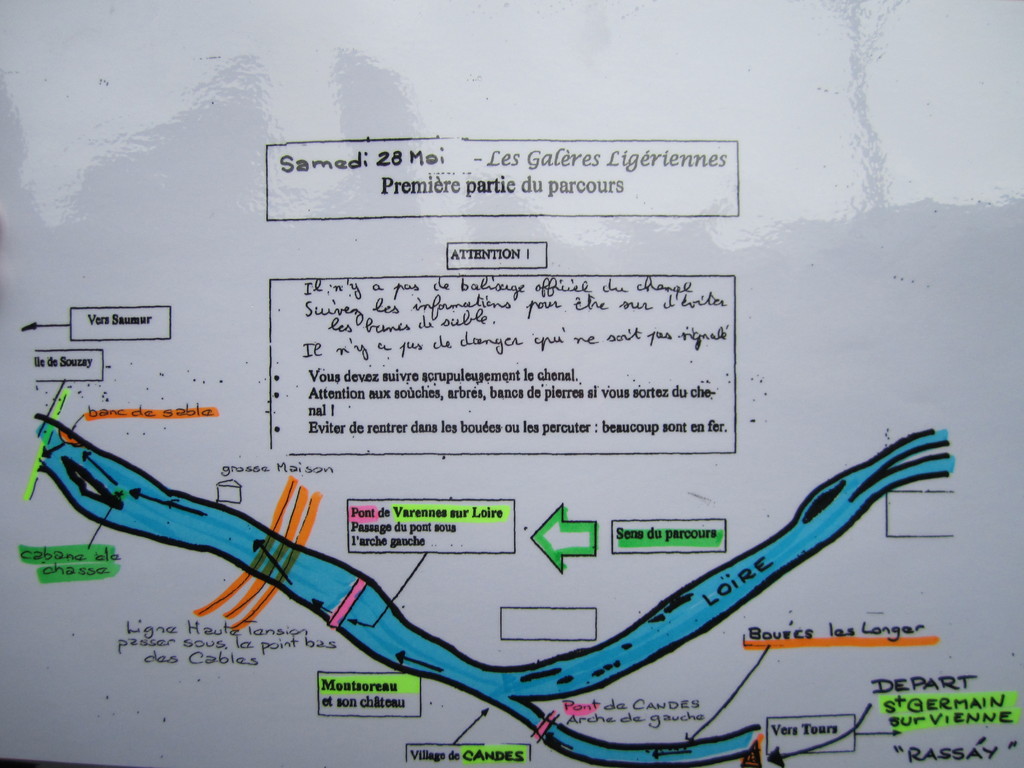 Samedi 28 Mai - Les Galères Ligériennes
Première partie du parcours
ATTENTION !
Il n'y a pas de balisage officiel du chenal
Suivez les informations pour être sur d'éviter
les bancs de sable.
Il n'y a pas de danger qui ne soit pas signalé
• Vous devez suivre scrupuleusement le chenal.
• Attention aux souches, arbres, bancs de pierres si vous sortez du che-
nal !
• Eviter de rentrer dans les bouées ou les percuter : beaucoup sont en fer.
Vers Saumur
Ile de Souzay
banc de sable
grosse Maison
Pont de Varennes sur Loire
Passage du pont sous
l'arche gauche
Sens du parcours
cabane de
chasse
LOIRE
Ligne Haute Tension
passer sous le point bas
des Cables
Bouées les Longer
Montsoreau
et son château
Pont de CANDES
Arche de gauche
DEPART
St GERMAIN
sur VIENNE
"RASSAY"
Vers Tours
Village de CANDES